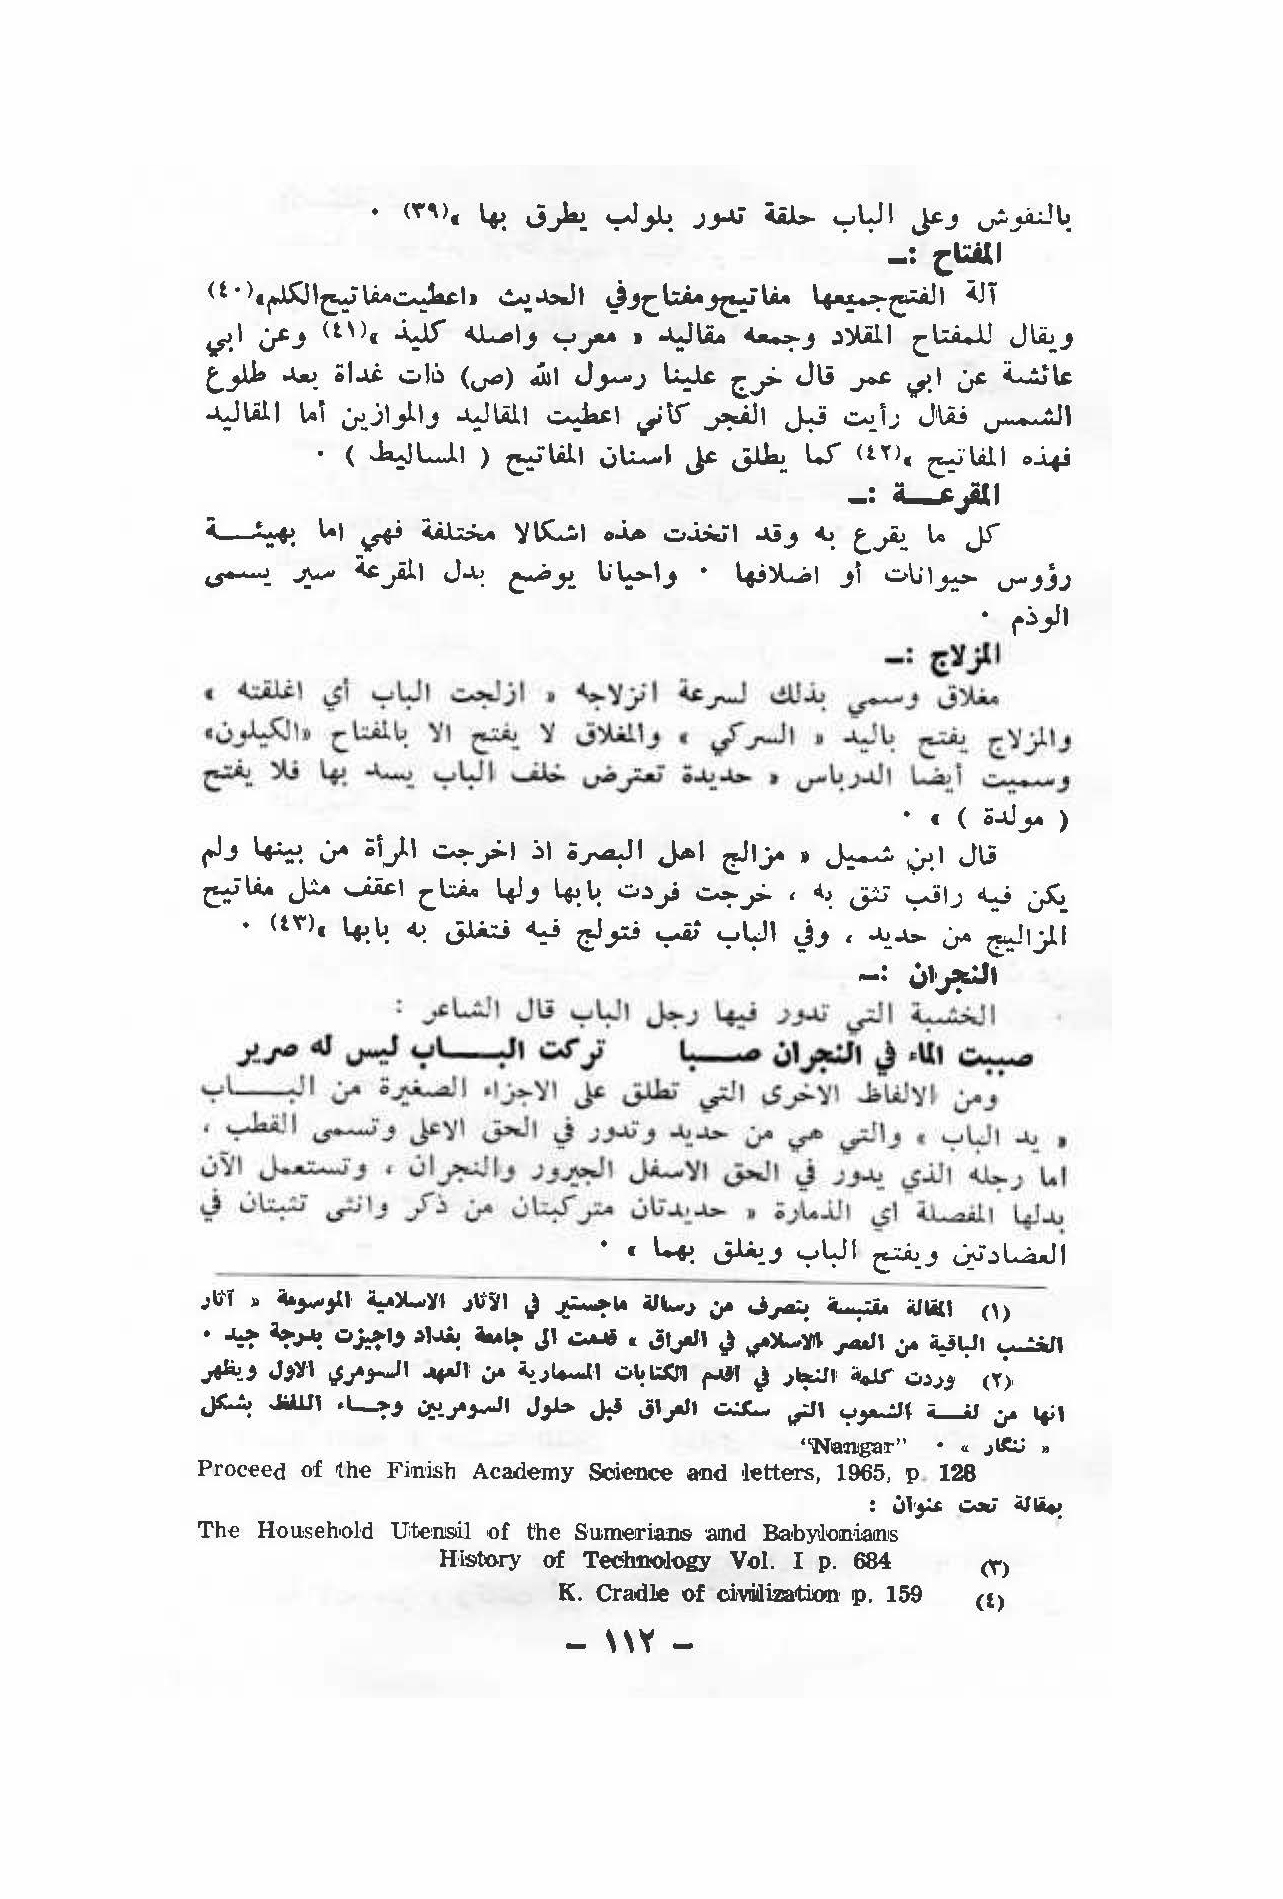 بالنفوش وعلى الباب حلقة تدور بلولب يطرق بها »(٣٩) ٠
المفتاح :ـ
آلة الفتح جميعها مفاتيح ومفتاح وفي الحديث «اعطيت مفاتيح الكلم»(٤٠)
ويقال للمفتاح المقلاد وجمعه مقاليد « معرب واصله كليذ »(٤١) وعن ابي
عائشة عن ابي عمر قال خرج علينا رسول الله (ص) ذات غداة بعد طلوع
الشمس فقال رأيت قبل الفجر كأني اعطيت المقاليد والموازين أما المقاليد
فهذه المفاتيح »(٤٢) كما يطلق على اسنان المفاتيح ( المساليط ) ٠
المقرعـــة :ـ
كل ما يقرع به وقد اتخذت هذه اشكالا مختلفة فهي اما بهيئـــة
رؤوس حيوانات أو اضلافها ٠ واحيانا يوضع بدل المقرعة سير يسمى
الوذم ٠
المزلاج :ـ
مغلاق وسمي بذلك لسرعة انزلاجه « ازلجت الباب أي اغلقته »
والمزلاج يفتح باليد « السركي » والمغلاق لا يفتح الا بالمفتاح «الكيلون»
وسميت أيضا الدرباس « حديدة تعترض خلف الباب يسد بها فلا يفتح
( مولدة ) » ٠
قال ابن شميل « مزالج اهل البصرة اذ اخرجت المرأة من بيتها ولم
يكن فيه راقب تثق به ، خرجت فردت بابها ولها مفتاح اعقف مثل مفاتيح
المزاليج من حديد ، وفي الباب ثقب فتولج فيه فتغلق به بابها »(٤٣) ٠
النجران :ـ
الخشبة التي تدور فيها رجل الباب قال الشاعر :
صببت الماء في النجران صـــبا تركت البـــاب ليس له صرير
ومن الالفاظ الاخرى التي تطلق على الاجزاء الصغيرة من البـــاب
« يد الباب » والتي هي من حديد وتدور في الحق الاعلى وتسمى القطب ،
اما رجله الذي يدور في الحق الاسفل الجيرور والنجران ، وتستعمل الآن
بدلها المفصلة اي الذمارة « حديدتان متركبتان من ذكر وانثى تثبتان في
العضادتين ويفتح الباب ويغلق بهما » ٠
(١) المقالة مقتبسة بتصرف من رسالة ماجستير في الآثار الاسلامية الموسومة « آثار
الخشب الباقية من العصر الاسلامي في العراق » قدمت الى جامعة بغداد واجيزت بدرجة جيد ٠
(٢) وردت كلمة النجار في اقدم الكتابات المسمارية من العهد السومري الاول ويظهر
انها من لغـــة الشعوب التي سكنت العراق قبل حلول السومريين وجـــاء اللفظ بشكل
« ننگار » ٠ “Nangar”
Proceed of the Finish Academy Science and letters, 1965, p. 128
بمقالة تحت عنوان :
The Household Utensil of the Sumerians and Babylonians
History of Technology Vol. I p. 684 (٣)
K. Cradle of civilization p. 159 (٤)
– ١١٢ –